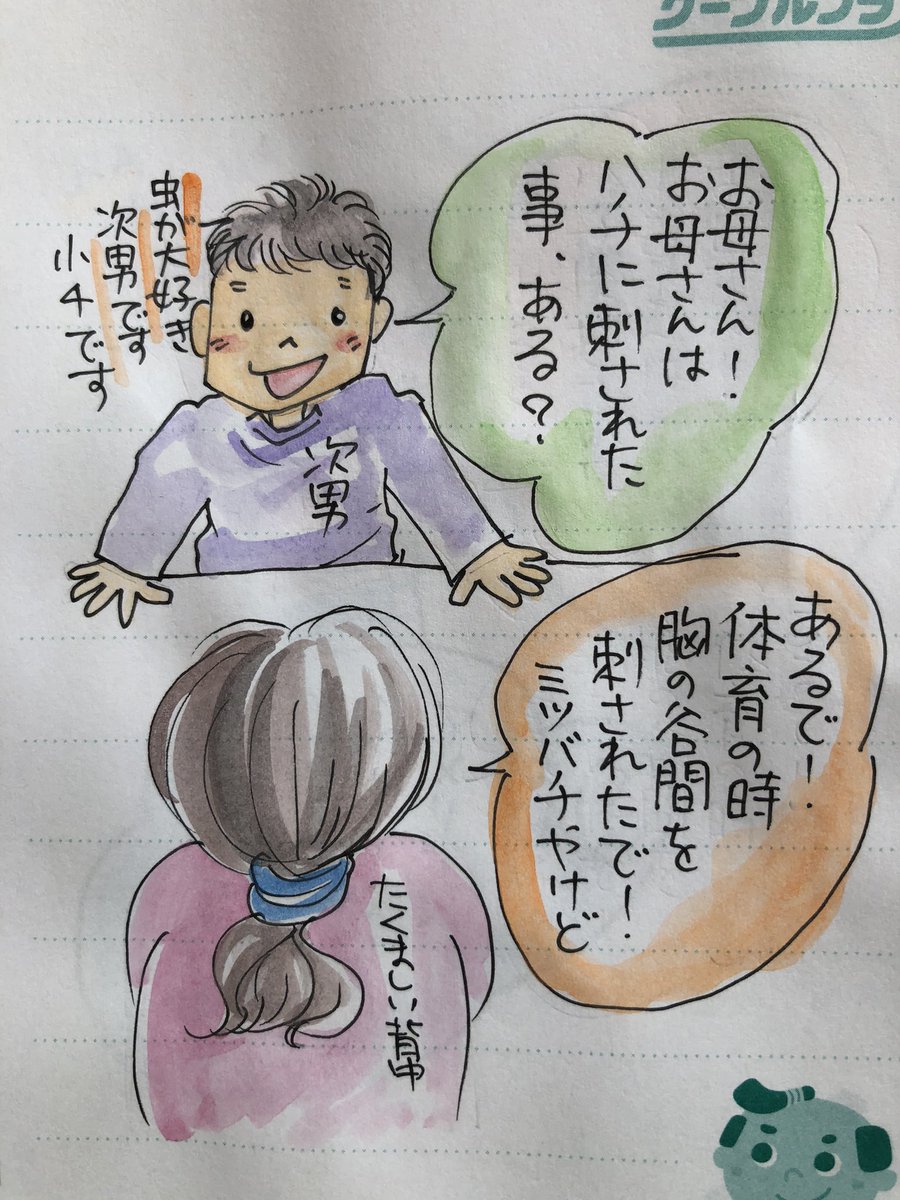 お母さん!
お母さんは
ハチに刺された
事、ある?
虫が大好き
次男です
小4です
次男
あるで!
体育の時
胸の谷間を
刺されたで!
ミツバチやけど
たくましい背中